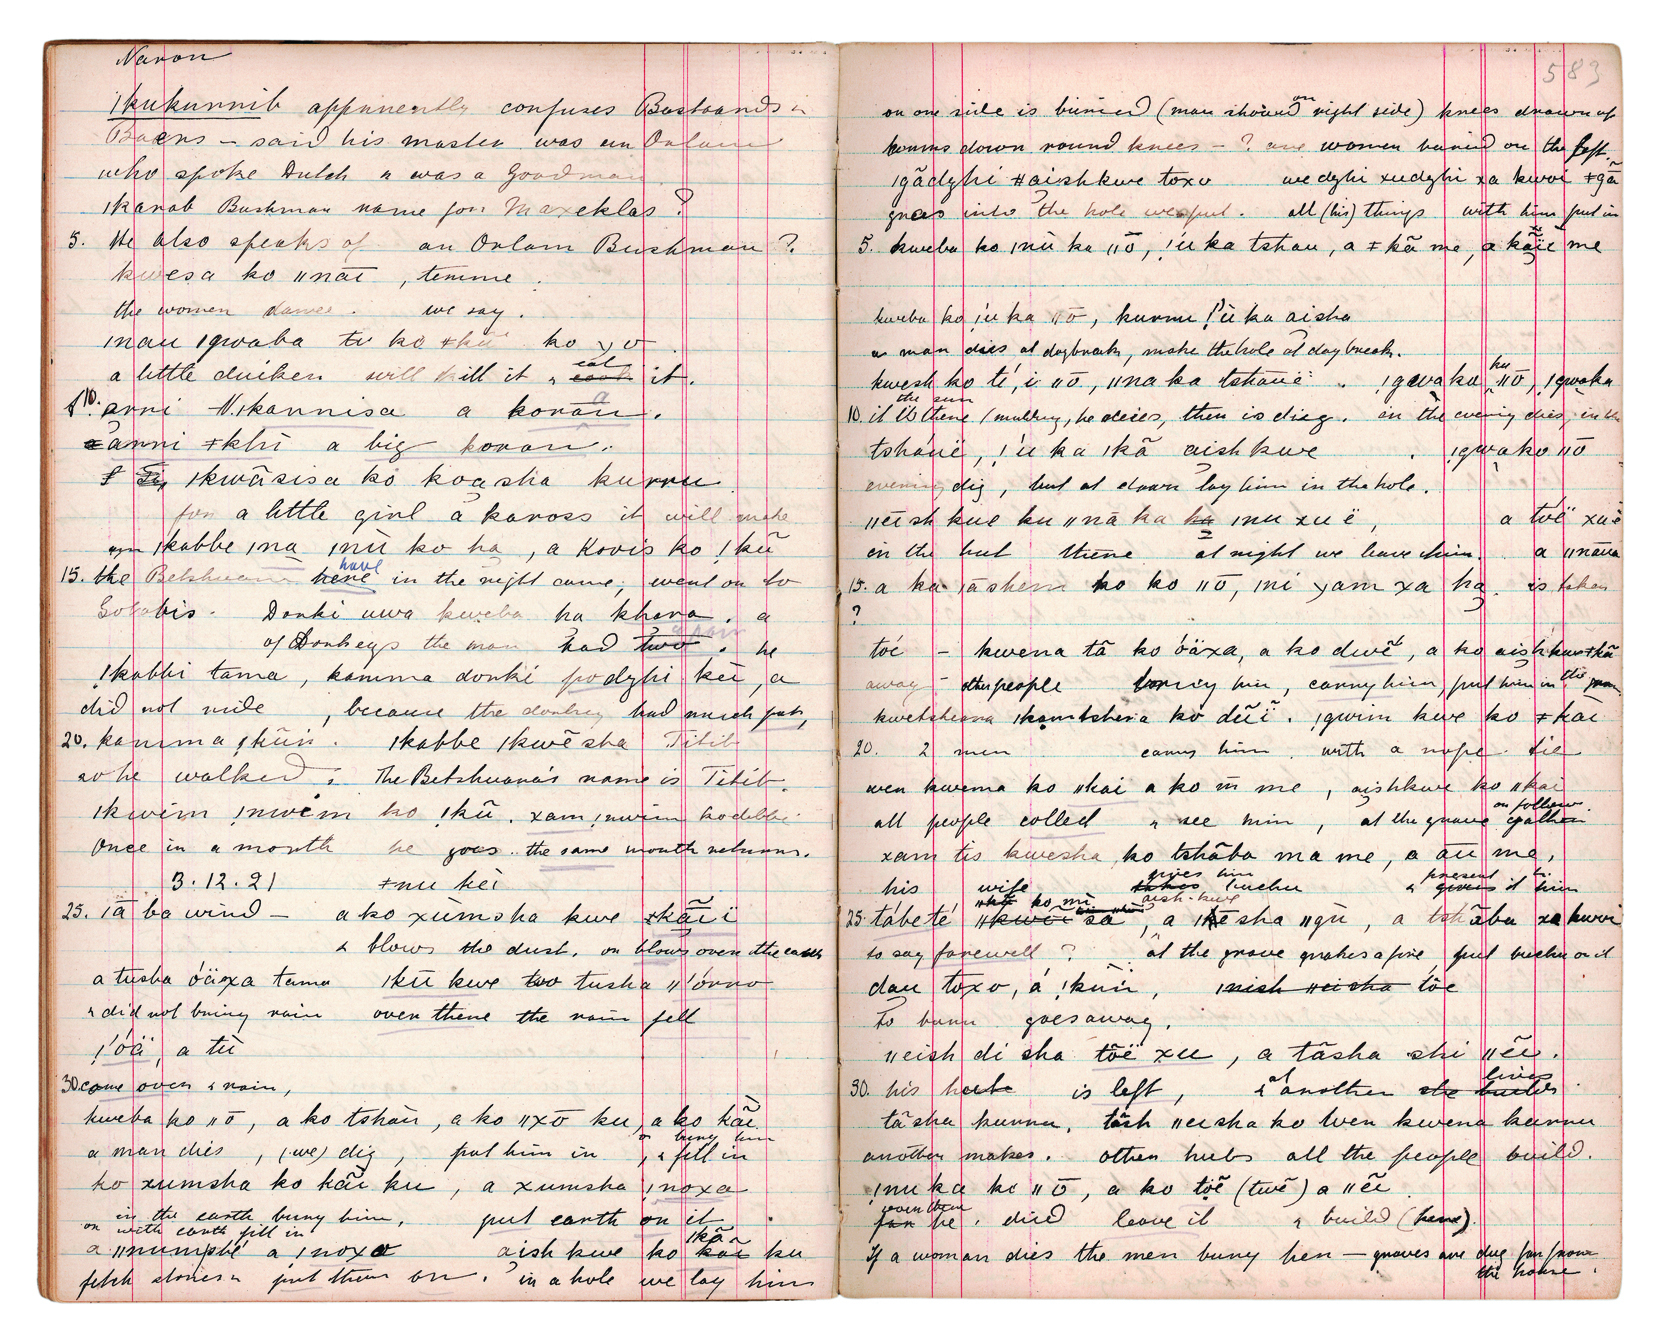 Naron
ǀkukurrib apparently confuses Bastaards &
Boers – said his master was an Orlam
who spoke Dutch & was a Goodman
ǀkanab Bushman name for Maxeklas?
5. He also speaks of an Orlam Bushman?
kwesa ko ǁnāī, temme.
the women dance. we say.
ǀnau ǀgwaba tu ko ǂkū ko
a little duiken will kill it & cook eat it.
10. arri ǀkannisa a koran.
arri ǂkhī a big koran.
ǀkwāsisa ko koasha kurru
for a little girl a kaross it will make
ǀkabbe ǀna ǀnū ko ha, a Kovis ko ǃkū
15. the Betshuana here have in the night came, went on to
Gobabis. Donki uwa kweba ha khara, a
of Donkeys the man had two. he
ǃkabbi tama, kamma donki podyhi kéi, a
did not ride, because the donkey had much pats,
20. kamma ǃkūn. ǀkabbe ǀkwēsha Titib
so he walked, The Betshuana's name is Titib.
ǀkwém ǃnwém ko ǃkū, xam ǃnwém kodebbi
Once in a month he goes. the same month returns.
3.12.21 ǂnu kéi
25. ǀā ba wind – a ko xūmsha kwe ǂkāīi
& blows the dust, or blows over the earth
a tusha óäxa tama ǀkū kwe two tusha ǁórro
& did not bring rain over there the rain fell
ǃóä, a tū
30. come over & rain,
kweba ko ǁō, a ko tshāu, a ko ǁxō ku, a ko kāī
a man dies, (we) dig, put him in, & fill in or bury him
ko xumsha ko kāī ku, a xumsha ǃnoxa
in the earth bury him, put earth on it.
or with earth fill in
a ǁnumpté a ǃnoxa aish kwe ko kāī ǀkā ku
fetch stones & put them on. in a hole we lay him
583
on one side is buried (man should on right side) knees drawn up
comms down round knees – ? are women buried on the left.
ǀgādyhi ǂaishkwe toxo we dyhi xudyhi xa kwoi ǂgā
grass into the hole we put. all (his) things with him put in
5. kweba ko ǀnū ka ǁō, ǃ'ú ka tshau, a ǂkā me, a kāīe me
kweba ko ǃ'ú ka ǁō, kurru ǃ'ú ka aisha
a man dies at daybreak, make the hole at daybreak.
kwesh ko té, i ǁō, ǁna ka tshāuë. ǀgwaka ku ǁō, ǀgwaka
10. it is there the sun (midday, he dies, then is dug. in the evening dies, in the
tshāuë, ǃ'ú ka ǀkā aish kwe. ǀgwako ǁō
evening dig, but at dawn lay him in the hole.
ǁēish kue ku ǁnā ka ha ǀnu xu ë, a toë xuë
in the hut there at night we leave him. a ǁnāua
15. a ka ǀāshem ko ko ǁō, ǀni yam xa ha. is tshau
?
tóé – kwena tā ko óäxa, a ko dwē, a ko aishkwe ǂkā
away – other people carry him, carry him, put him in the grave
kwetshera ǀkamtshera ko dēī. ǀgwim kwe ko ǂkāī
20. 2 men carry him with a rope tie
wen kwena ko ǁkai a ko m̄ me, aishkwe ko ǁkai
all people collect & see him, at the grave gather or follow.
xam tis kwesha ko tshāba ma me, a au me,
his wife takes gives him buchu & gives present it to him
25. tabeté ǁkwéi sa ko mi aish-kwe, a ǀkē sha ǁgū, a tshāba xa kwoi
to say farewell? at the grave makes a fire put buchu on it
dau toxo, a ǃkūn, ǀnish ǁeisha tōe
To burn goes away.
ǁeish di sha tōë xu, a tāsha shi ǁēu.
30. his hut is left, & at another she builds lives
tāsha kurru, tāsh ǁeisha ko wen kwena kurru
another makes. other huts all the people build.
ǃnu ka ko ǁō, a ko tōē (twē) a ǁēī
for when he died leave it & build (here).
If a woman dies the men bury her – graves are dug far from
the house.